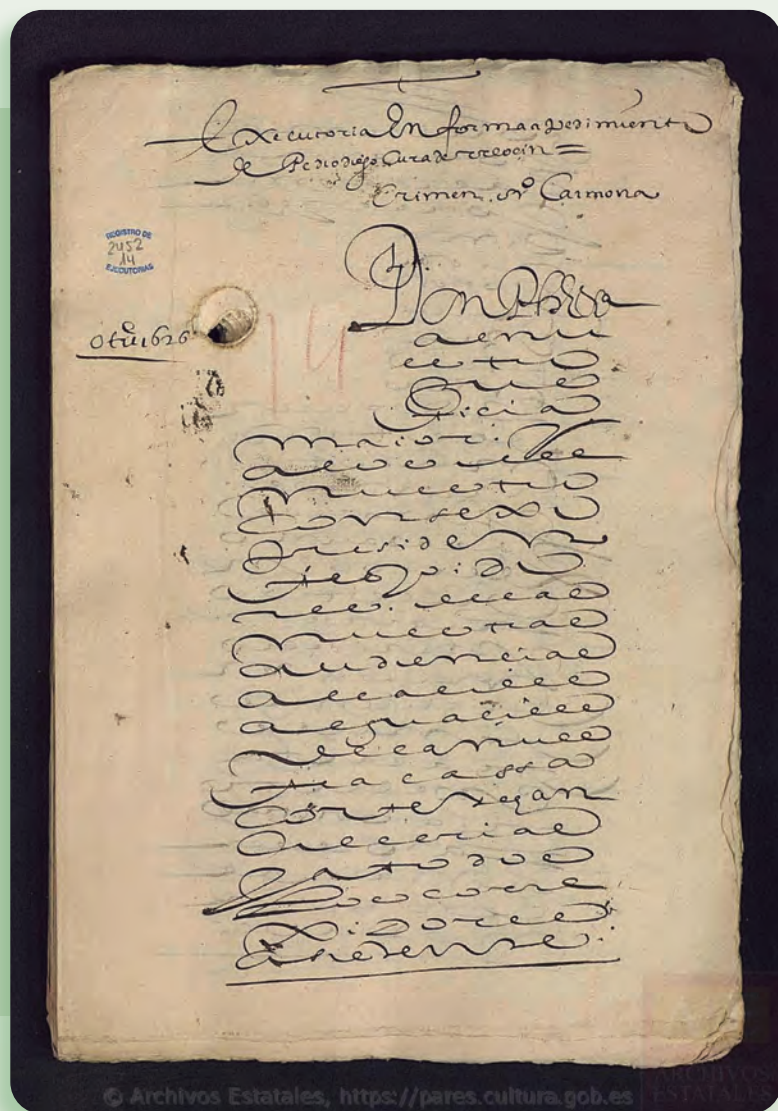 Executoria En forma a pedimiento
de Pedro diego Cura de rreocin =
Crimen. Sno Carmona
REGISTRO DE
2452
14
EJECUTORIAS
otue 1626
14
Don Phe
a nu
estro
Jus
ticia
maior. Y
a los del
nuestro
Consexo
presiden
tes Y oido
res. de las
nuestras
audiencias
alcaldes
alguaciles
de la nues
tra cassa
corte Y chan
cillerias
Y a todos
los corre
xidores
asistente.
© Archivos Estatales, https://pares.cultura.gob.es
ARCHIVOS
ESTATALES